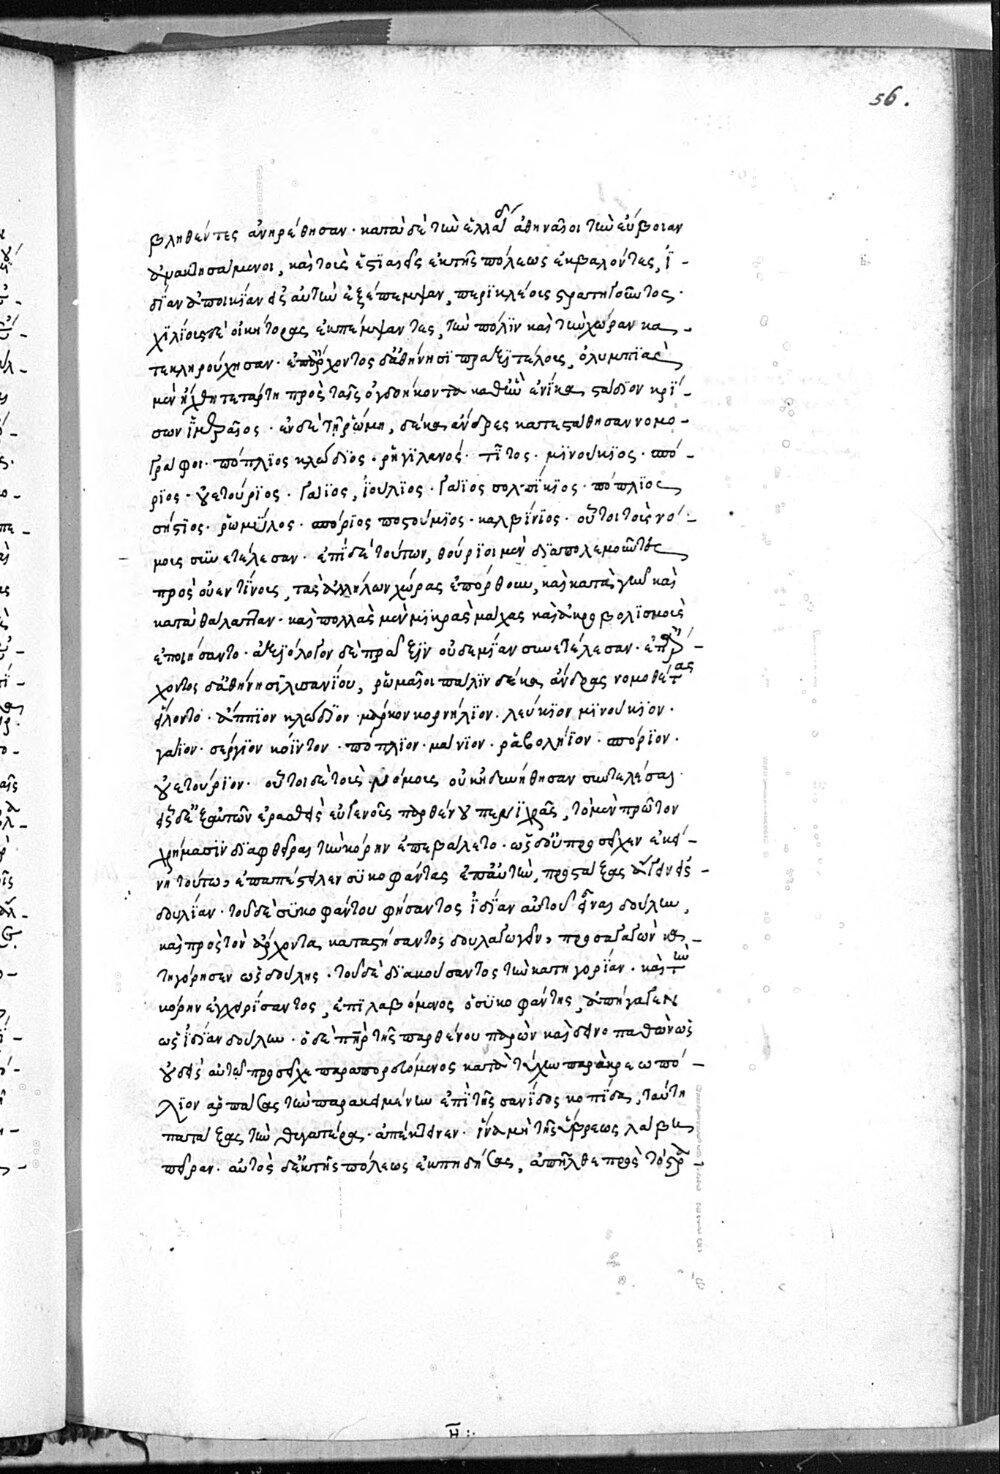 56.
βληθέντες ἀνηρέθησαν· κατὰ δὲ τὴν ἑλλάδ ἀθηναῖοι τὴν εὔβοιαν
ἀνακτησάμενοι, καὶ τοὺς ἑστιαεῖς ἐκ τῆς πόλεως ἐκβαλόντες, ἰ-
δίαν ἀποικίαν εἰς αὐτὴν ἐξέπεμψαν, περικλέους στρατηγοῦντος·
χιλίους δὲ οἰκήτορας ἐκπέμψαντες, τὴν πόλιν καὶ τὴν χώραν κα-
τεκληρούχησαν· ἐπ' ἄρχοντος δ' ἀθήνησι πραξιτέλους, ὀλυμπιὰς
μὲν ἤχθη τετάρτη πρὸς ταῖς ὀγδοήκοντα καθ' ἣν ἐνίκα στάδιον κρί-
σων ἱμεραῖος· ἐν δὲ τῇ ῥώμῃ, δέκα ἄνδρες κατεστάθησαν νομο-
γράφοι· πόπλιος κλώδιος· ῥηγιλανός· τίτος· μινούκιος· σπό-
ριος· οὐετούριος· γάιος, ἰούλιος· γάιος σολπίκιος· πόπλιος
σήστιος· ῥωμύλος· σπόριος ποστούμιος· καλβίνιος· οὗτοι τοὺς νό-
μους συνετέλεσαν· ἐπὶ δὲ τούτων, θούριοι μὲν διαπολεμοῦντες
πρὸς οὐεντίνους, τὰς ἀλλήλων χώρας ἐπόρθουν, καὶ κατὰ γῆν καὶ
κατὰ θάλατταν· καὶ πολλὰς μὲν μικρὰς μάχας καὶ ἀκροβολισμοὺς
ἐποιήσαντο· ἀξιόλογον δὲ πρᾶξιν οὐδεμίαν συνετέλεσαν· ἐπ' ἄρ-
χοντος δ' ἀθήνησι λισανίου, ῥωμαῖοι πάλιν δέκα ἄνδρας νομοθέτας
εἵλοντο· ἄππιον κλώδιον· μάρκον κορνήλιον· λεύκιον μινούκιον·
γάιον· σέργιον κόιντον· πόπλιον· μάνιον· ῥαβολήιον· σπόριον·
οὐετούριον· οὗτοι δὲ τοὺς νόμους οὐκ ἠδυνήθησαν συντελέσαι·
εἷς δὲ ἐξ αὐτῶν ἐρασθεὶς εὐγενοῦς παρθένου πενιχρᾶς, τὸ μὲν πρῶτον
χρήμασιν διαφθεῖραι τὴν κόρην ἐπεβάλετο· ὡς δ' οὐ προσεῖχεν ἐκεί-
νη τούτω, ἐπαπέστειλεν συκοφάντας ἐπ' αὐτὴν, προστάξας ἄγειν εἰς
δουλίαν· τοῦ δὲ συκοφάντου φήσαντος ἰδίαν αὐτοῦ εἶναι δούλην,
καὶ πρὸς τὸν ἄρχοντα καταστήσαντος δουλαγωγεῖν, προσαγαγὼν κα-
τηγόρησεν ὡς δούλης· τοῦ δὲ διακούσαντος τὴν κατηγορίαν· καὶ τὴν
κόρην ἐγχειρίσαντος, ἐπιλαβόμενος ὁ συκοφάντης, ἀπήγαγεν
ὡς ἰδίαν δούλην· ὁ δὲ πηρ τῆς παρθένου παρὼν καὶ δεινοπαθῶν ὡς
οὐδεὶς αὐτῷ προσεῖχε παραπορευόμενος κατὰ τύχην παρὰ κρεωπό-
λιον ἁρπάσας τὴν παρακειμένην ἐπὶ τῆς σανίδος κοπίδα, ταύτη
πατάξας τὴν θυγατέρα, ἀπέκτεινεν· ἵνα μὴ τῆς ὕβρεως λάβη
πεῖραν· αὐτὸς δ' ἐκ τῆς πόλεως ἐκπηδήσας, ἀπῆλθε πρὸς τὸ στρ-
η